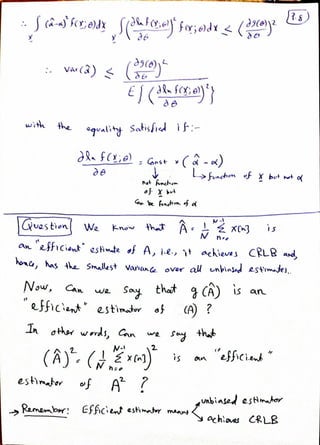 7.8
∴ ∫ (α̂-α)² f(X;θ)dx ∫ (∂ln f(X;θ)/∂θ)² f(X;θ)dx ≤ (∂g(θ)/∂θ)²
∴ var(α̂) ≤ (∂g(θ)/∂θ)² / E{(∂ln f(X;θ)/∂θ)²}
with the equality satisfied if:-
∂ln f(X;θ)/∂θ = Const × (α̂ - α)
not function of X but
can be function of α
↳ function of X but not α
Question We know that Â = 1/N Σ_{n=0}^{N-1} X[n] is
an "efficient" estimate of A, i.e., it achieves CRLB and,
hence, has the smallest variance over all unbiased estimates.
Now, Can we say that g(Â) is an
"efficient" estimator of (A) ?
In other words, Can we say that
(Â)² = (1/N Σ_{n=0}^{N-1} X[n])² is an "efficient"
estimator of A² ?
→ Remember: Efficient estimator means
unbiased estimator
achieves CRLB